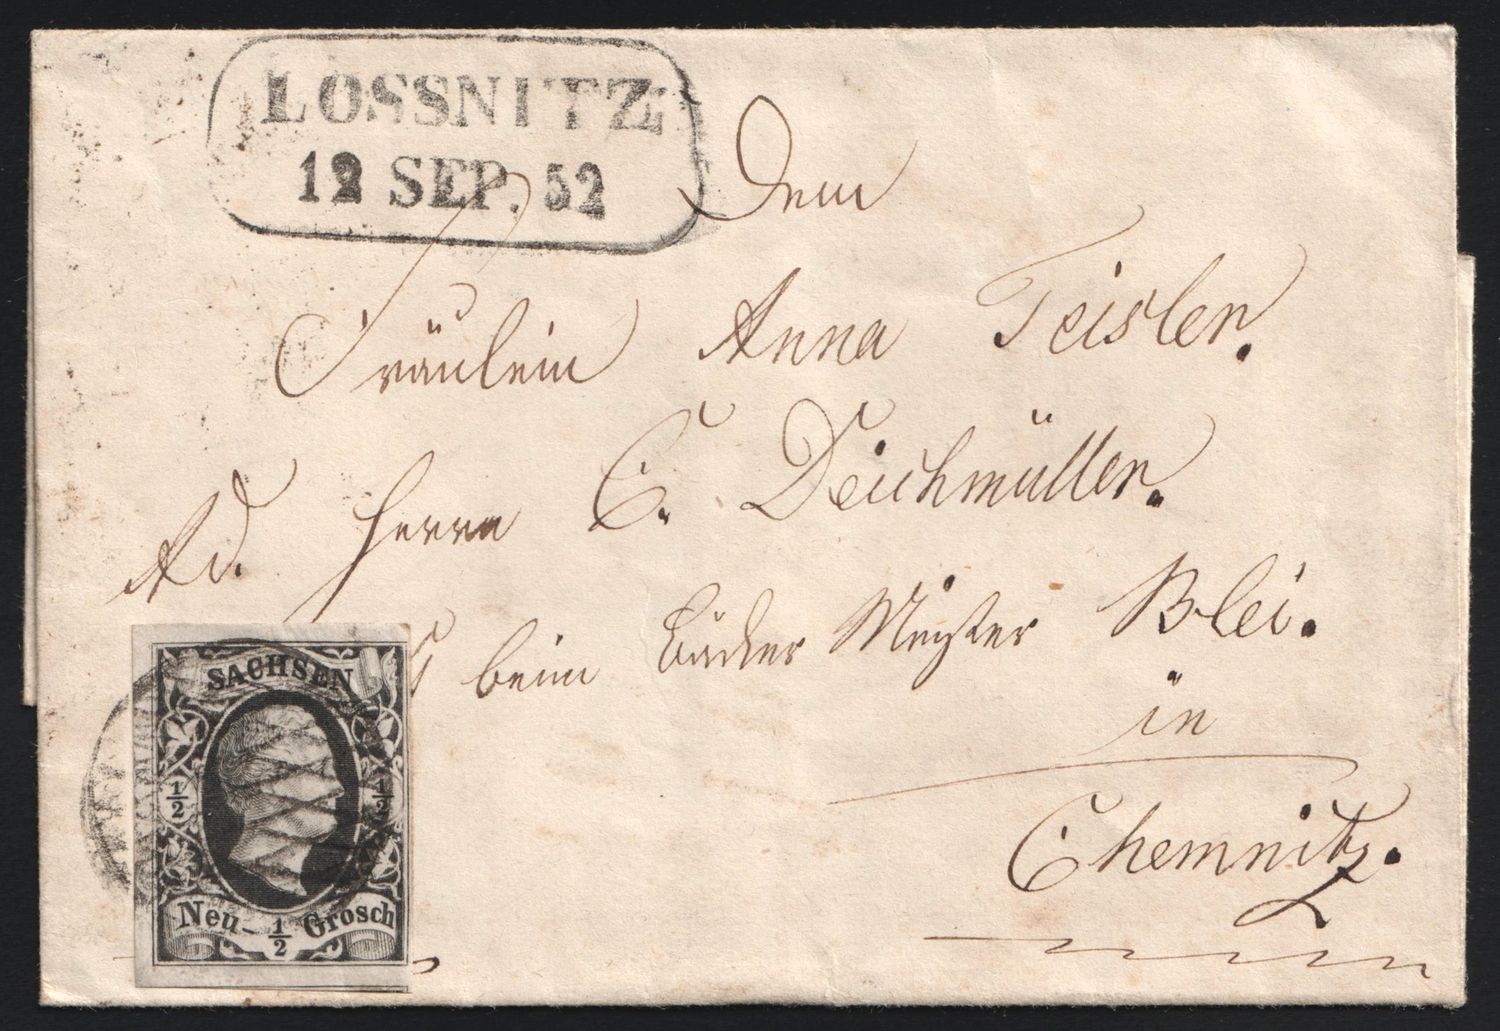 LOSSNITZ
12 SEP. 52
Dem
Fräulein Anna Teisler.
Ad. Herrn E. Deichmüller.
beim Bäcker Meister Blei.
in
Chemnitz.
SACHSEN
1/2 1/2
Neu- 1/2 Grosch